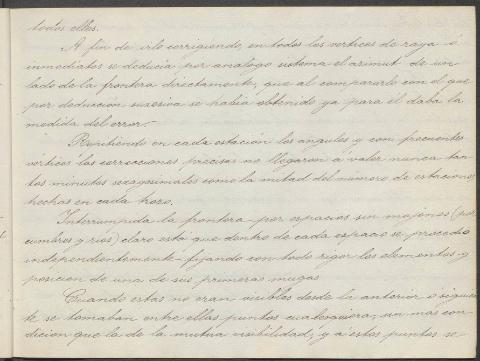 todos ellos.
A fin de irlo corrigiendo, en todos los vortices de raya ó
inmediatos se deducia por analogo sistema el azimut de un
lado de la frontera directamente, que al compararle con el que
por deduccion sucesiva se habia obtenido ya para él daba la
medida del error.-
Repitiendo en cada estación los angulos y con frecuentes
vortices las correcciones precisas no llegaron a valer nunca tan-
tos minutos sexagesimales como la mitad del número de estaciones
hechas en cada trozo.
Interrumpida la frontera por espacios sin mojones (por
cumbres y rios) claro está que dentro de cada espacio se procedio
independientemente fijando con todo rigor los elementos y
posicion de una de sus primeras mugas
Cuando estas no eran visibles desde la anterior ó siguien
te se tomaban entre ellas puntos cualesquiera, sin mas con-
dicion que la de la mutua visibilidad, y a estos puntos se